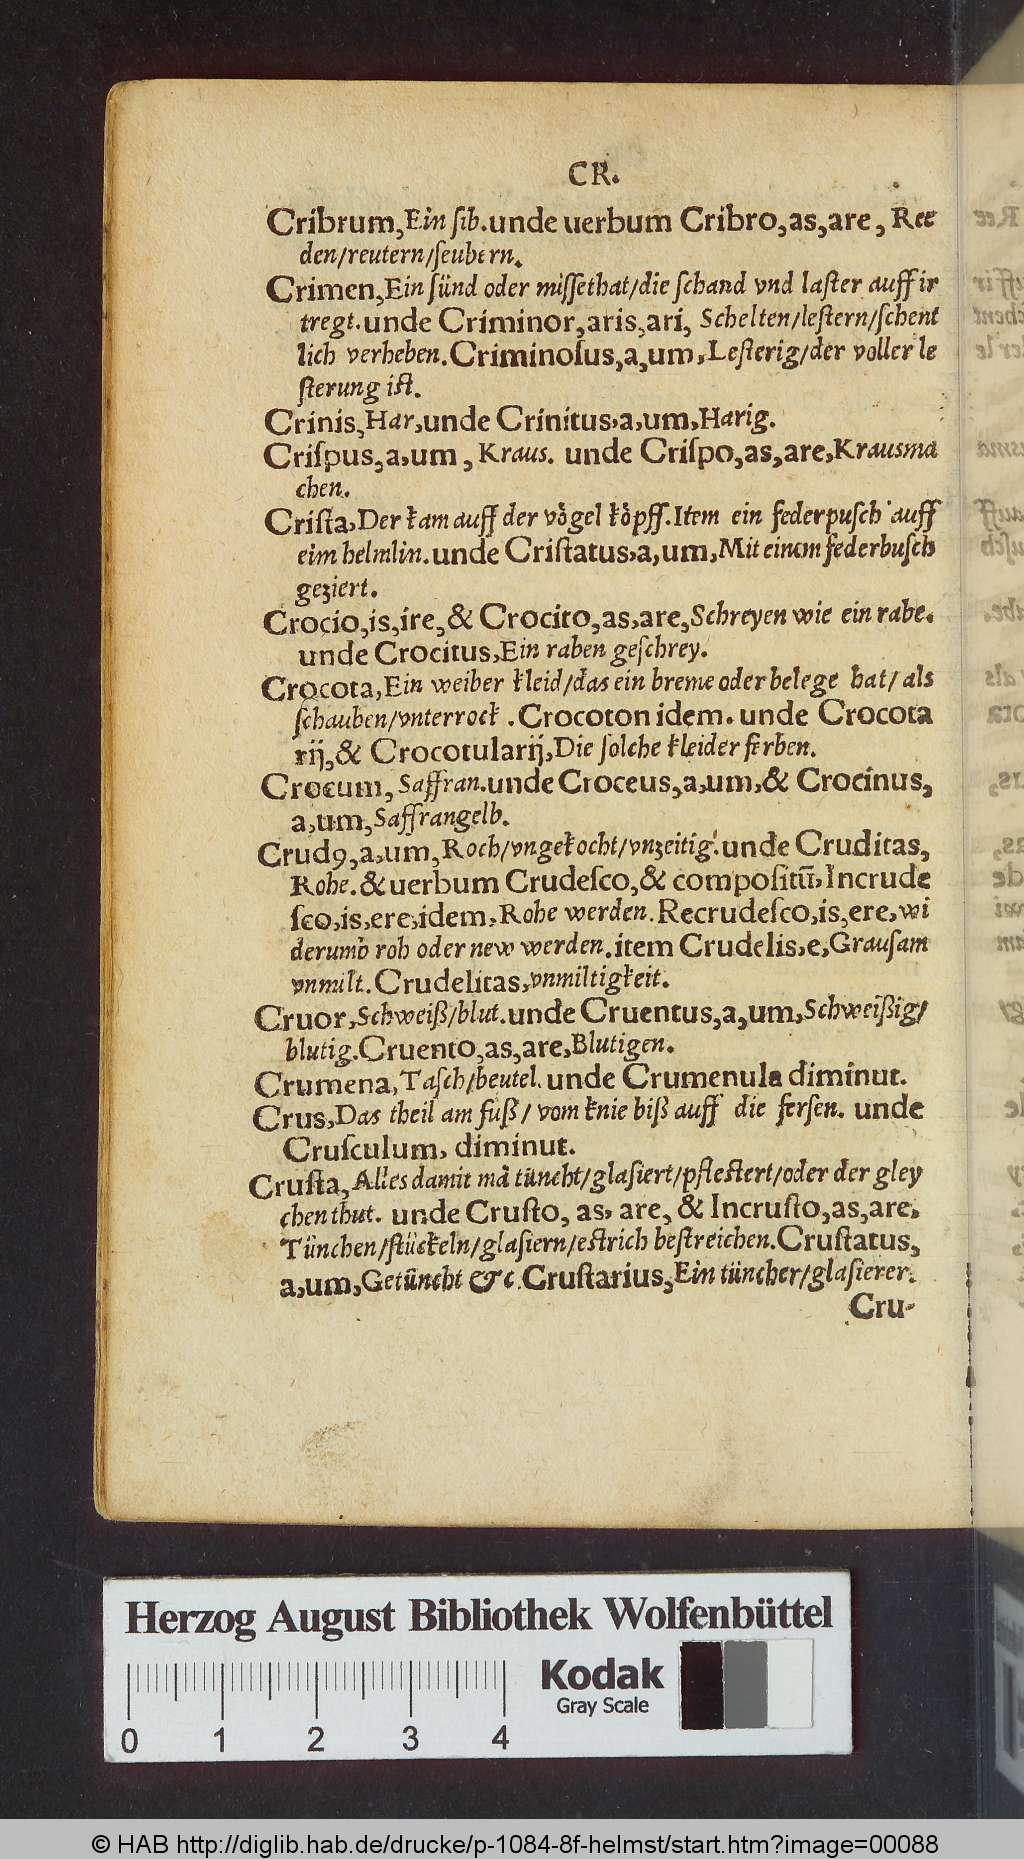 CR.
Cribrum, Ein ſib. unde uerbum Cribro, as, are, Ree
den/reutern/ſeubern.
Crimen, Ein ſünd oder miſſethat/die ſchand vnd laſter auff ir
tregt. unde Criminor, aris, ari, Schelten/leſtern/ſchent
lich verheben. Criminoſus, a, um, Leſterig/der voller le
ſterung iſt.
Crinis, Har, unde Crinitus, a, um, Harig.
Criſpus, a, um, Kraus. unde Criſpo, as, are, Krausma
chen.
Criſta, Der kam auff der vögel köpff. Item ein federpuſch auff
eim helmlin. unde Criſtatus, a, um, Mit einem federbuſch
geziert.
Crocio, is, ire, & Crocito, as, are, Schreyen wie ein rabe.
unde Crocitus, Ein raben geſchrey.
Crocota, Ein weiber kleid/das ein breme oder belege hat/als
ſchauben/vnterrock. Crocoton idem. unde Crocota
rij, & Crocotularij, Die ſolche kleider ferben.
Crocum, Saffran. unde Croceus, a, um, & Crocinus,
a, um, Saffrangelb.
Crudꝰ, a, um, Roch/vngekocht/vnzeitig. unde Cruditas,
Rohe. & uerbum Crudeſco, & compoſitū, Incrude
ſco, is, ere, idem, Rohe werden. Recrudeſco, is, ere, wi
derumb roh oder new werden. item Crudelis, e, Grauſam
vnmilt. Crudelitas, vnmiltigkeit.
Cruor, Schweiß/blut. unde Cruentus, a, um, Schweißig/
blutig. Cruento, as, are, Blutigen.
Crumena, Taſch/beutel. unde Crumenula diminut.
Crus, Das theil am fuß/ vom knie biß auff die ferſen. unde
Cruſculum, diminut.
Cruſta, Alles damit mā tüncht/glaſiert/pfleſtert/oder der gley
chen thut. unde Cruſto, as, are, & Incruſto, as, are,
Tünchen/ſtückeln/glaſiern/eſtrich beſtreichen. Cruſtatus,
a, um, Getüncht &c. Cruſtarius, Ein tüncher/glaſierer.
Cru-
Herzog August Bibliothek Wolfenbüttel
Kodak
Gray Scale
0 1 2 3 4
© HAB http://diglib.hab.de/drucke/p-1084-8f-helmst/start.htm?image=00088